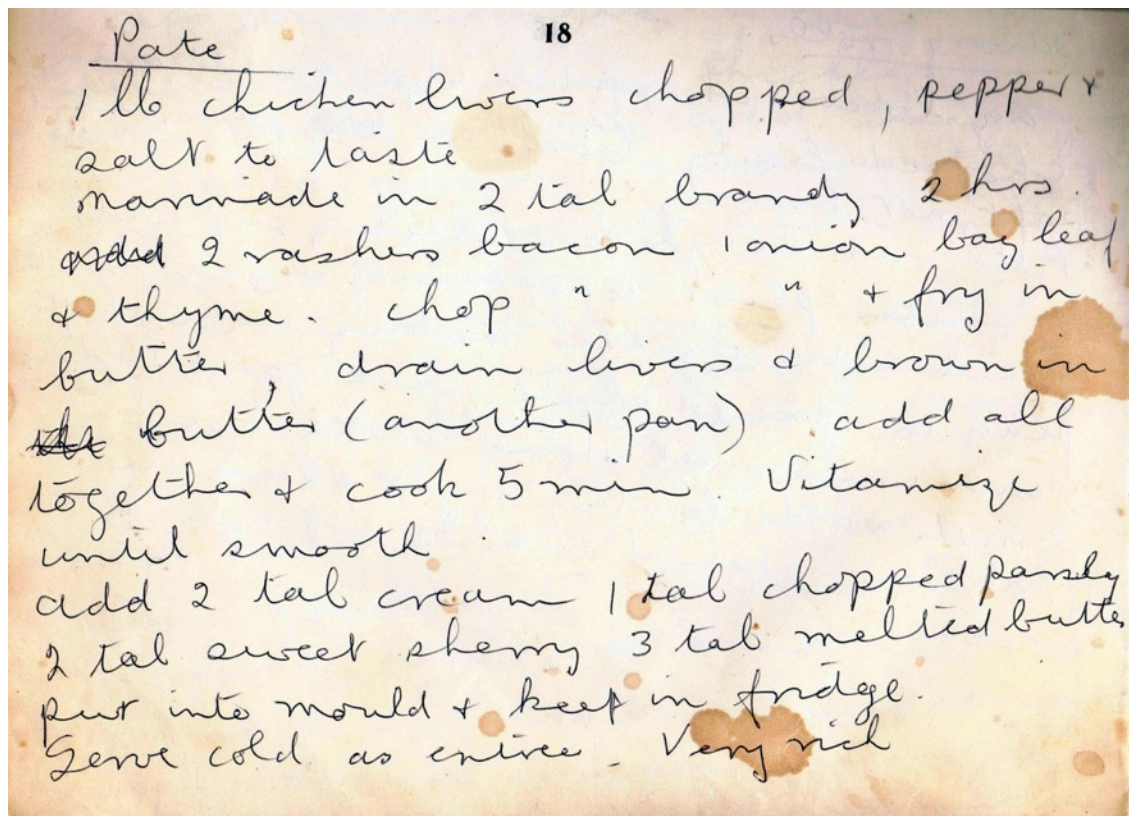 18
Pate
1 lb chicken livers chopped, pepper +
salt to taste
marinade in 2 tab brandy 2 hrs.
2 rashers bacon 1 onion bay leaf
& thyme. chop " " + fry in
butter, drain livers & brown in
butter (another pan) add all
together & cook 5 min. Vitamize
until smooth
add 2 tab cream 1 tab chopped parsly
2 tab sweet sherry 3 tab melted butter
put into mould + keep in fridge.
Serve cold as entree. Very rich